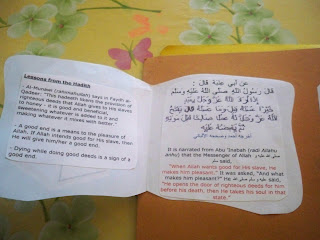 Lessons from the Hadith
- Al-Munawi (rahimullulah) says in Faydh al-
Qadeer: "This hadeeth likens the provision of
righteous deeds that Allah gives to His slaves
to honey - it is good and beneficial,
sweetening whatever is added to it and
making whatever it mixes with better."
- A good end is a means to the pleasure of
Allah. If Allah intends good for His slave, then
He will give him/her a good end.
- Dying while doing good deeds is a sign of a
good end.
عن أبي عنبة قال :
قال رسول الله صلى الله عليه وسلم
إذا أراد الله عز وجل بعبد
خيرا عسله قيل وما عسله قال يفتح
الله عز وجل له عملا صالحا قبل موته
ثم يقبضه عليه
It is narrated from Abu 'Inabah (radi Allahu
anhu) that the Messenger of Allah صلى الله عليه و
سلم said,
"When Allah wants good for His slave, He
makes him pleasant." It was asked, "And what
makes him pleasant?" He صلى الله عليه وسلم said,
"He opens the door of righteous deeds for him
before his death, then He takes his soul in that
state."